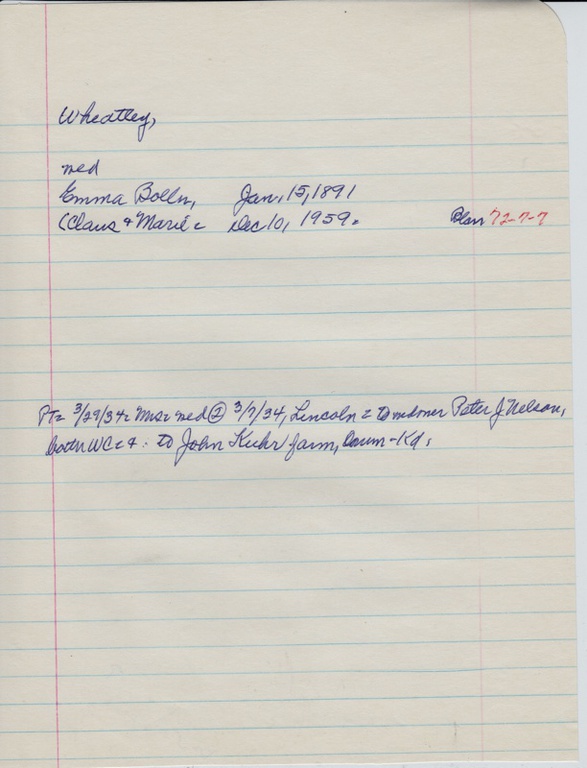 Wheatley,
med
Emma Bolln, Jan. 15, 1891
(Claus & Marie. Dec 10, 1959. Blair 72-7-7
3/29/34. Mrs. med ② 3/7/34, Lincoln to Peter J Nelson,
both WC. & to John Kuhr farm,